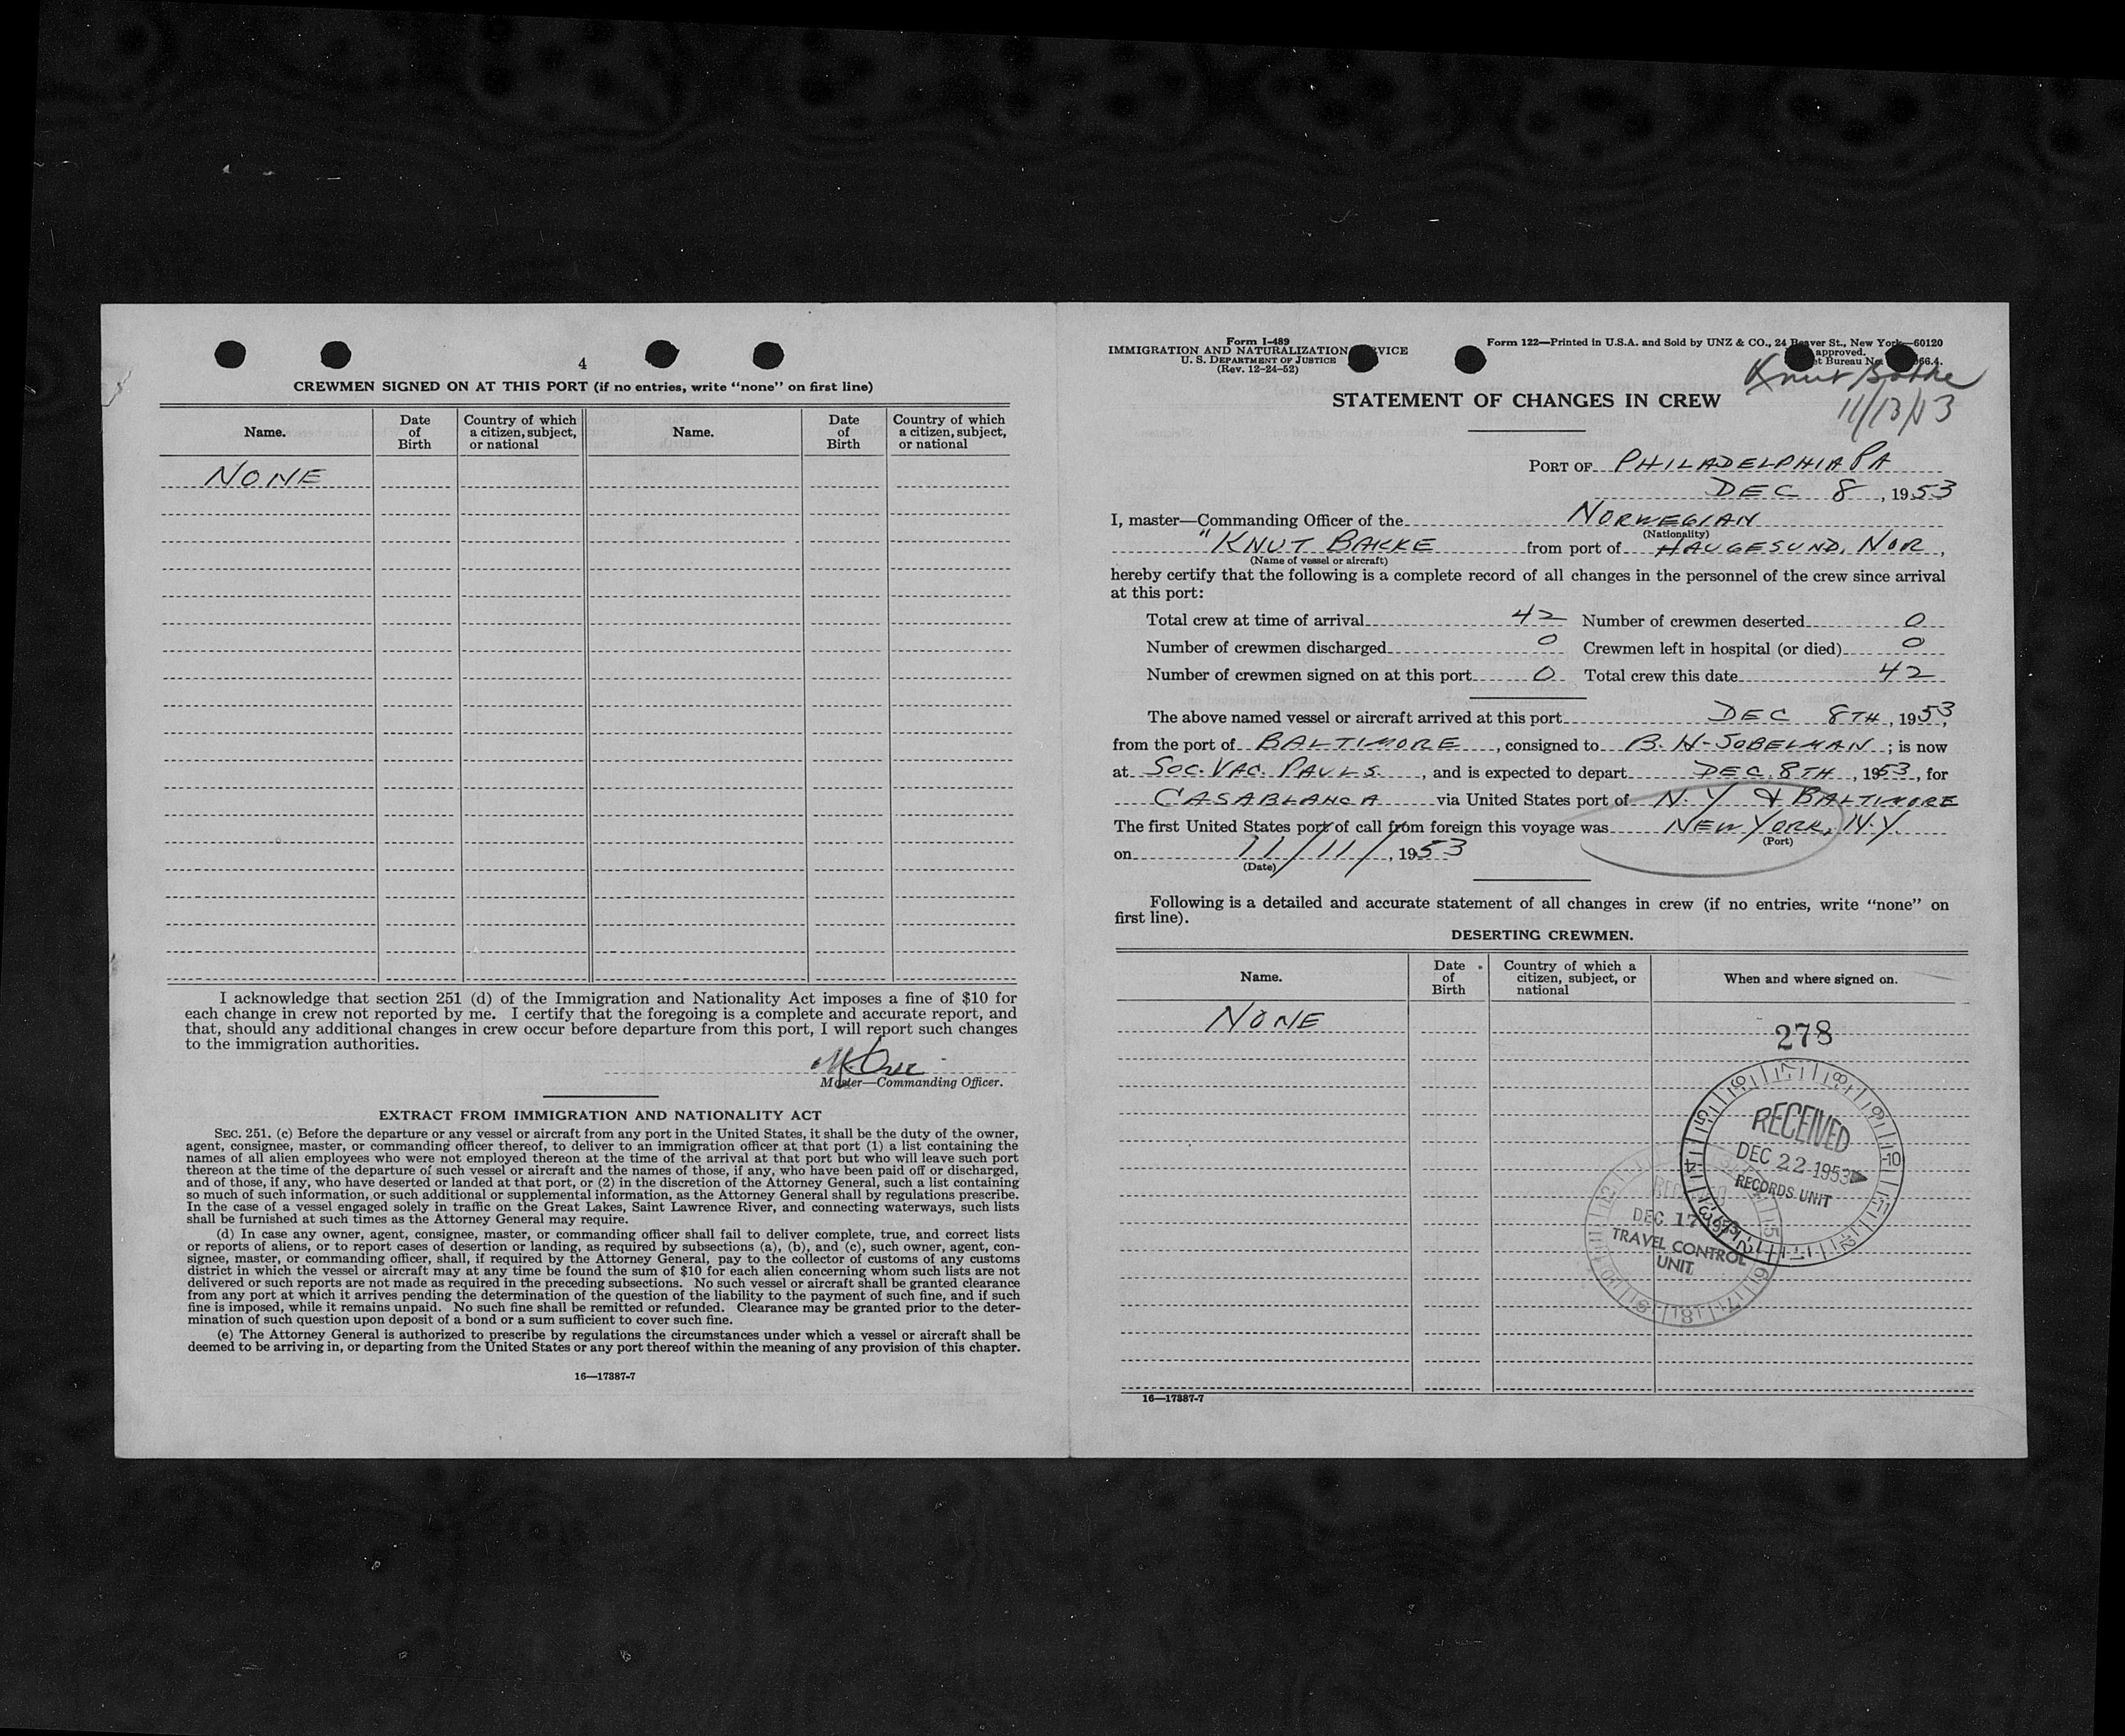 4
CREWMEN SIGNED ON AT THIS PORT (if no entries, write “none” on first line)
Name.
Date of Birth
Country of which a citizen, subject, or national
Name.
Date of Birth
Country of which a citizen, subject, or national
NONE
I acknowledge that section 251 (d) of the Immigration and Nationality Act imposes a fine of $10 for
each change in crew not reported by me. I certify that the foregoing is a complete and accurate report, and
that, should any additional changes in crew occur before departure from this port, I will report such changes
to the immigration authorities.
Master—Commanding Officer.
EXTRACT FROM IMMIGRATION AND NATIONALITY ACT
SEC. 251. (c) Before the departure or any vessel or aircraft from any port in the United States, it shall be the duty of the owner,
agent, consignee, master, or commanding officer thereof, to deliver to an immigration officer at that port (1) a list containing the
names of all alien employees who were not employed thereon at the time of the arrival at that port but who will leave such port
thereon at the time of the departure of such vessel or aircraft and the names of those, if any, who have been paid off or discharged,
and of those, if any, who have deserted or landed at that port, or (2) in the discretion of the Attorney General, such a list containing
so much of such information, or such additional or supplemental information, as the Attorney General shall by regulations prescribe.
In the case of a vessel engaged solely in traffic on the Great Lakes, Saint Lawrence River, and connecting waterways, such lists
shall be furnished at such times as the Attorney General may require.
(d) In case any owner, agent, consignee, master, or commanding officer shall fail to deliver complete, true, and correct lists
or reports of aliens, or to report cases of desertion or landing, as required by subsections (a), (b), and (c), such owner, agent, con-
signee, master, or commanding officer, shall, if required by the Attorney General, pay to the collector of customs of any customs
district in which the vessel or aircraft may at any time be found the sum of $10 for each alien concerning whom such lists are not
delivered or such reports are not made as required in the preceding subsections. No such vessel or aircraft shall be granted clearance
from any port at which it arrives pending the determination of the question of the liability to the payment of such fine, and if such
fine is imposed, while it remains unpaid. No such fine shall be remitted or refunded. Clearance may be granted prior to the deter-
mination of such question upon deposit of a bond or a sum sufficient to cover such fine.
(e) The Attorney General is authorized to prescribe by regulations the circumstances under which a vessel or aircraft shall be
deemed to be arriving in, or departing from the United States or any port thereof within the meaning of any provision of this chapter.
16—17387-7
Form I-489
IMMIGRATION AND NATURALIZATION
U. S. DEPARTMENT OF JUSTICE
(Rev. 12-24-52)
Form 122—Printed in U.S.A. and Sold by UNZ & CO., 24 Beaver St., New York—60120
approved.
Bureau No.
Knut Bakke
11/13/53
STATEMENT OF CHANGES IN CREW
PORT OF PHILADELPHIA PA
DEC 8, 1953
I, master—Commanding Officer of the NORWEGIAN
(Nationality)
"KNUT BAKKE from port of HAUGESUND, NOR,
(Name of vessel or aircraft)
hereby certify that the following is a complete record of all changes in the personnel of the crew since arrival
at this port:
Total crew at time of arrival 42 Number of crewmen deserted 0
Number of crewmen discharged 0 Crewmen left in hospital (or died) 0
Number of crewmen signed on at this port 0 Total crew this date 42
The above named vessel or aircraft arrived at this port DEC 8TH, 1953,
from the port of BALTIMORE, consigned to B. H. SOBELMAN; is now
at SOC. VAC. PAULS., and is expected to depart DEC. 8TH, 1953, for
CASABLANCA via United States port of N.Y & BALTIMORE
The first United States port of call from foreign this voyage was NEW YORK, N.Y.
(Port)
on 11/11/, 1953
(Date)
Following is a detailed and accurate statement of all changes in crew (if no entries, write “none” on
first line).
DESERTING CREWMEN.
Name.
Date of Birth
Country of which a citizen, subject, or national
When and where signed on.
NONE
278
RECEIVED
DEC 22 1953
RECORDS UNIT
RECEIVED
DEC 17 1953
TRAVEL CONTROL
UNIT
16—17387-7